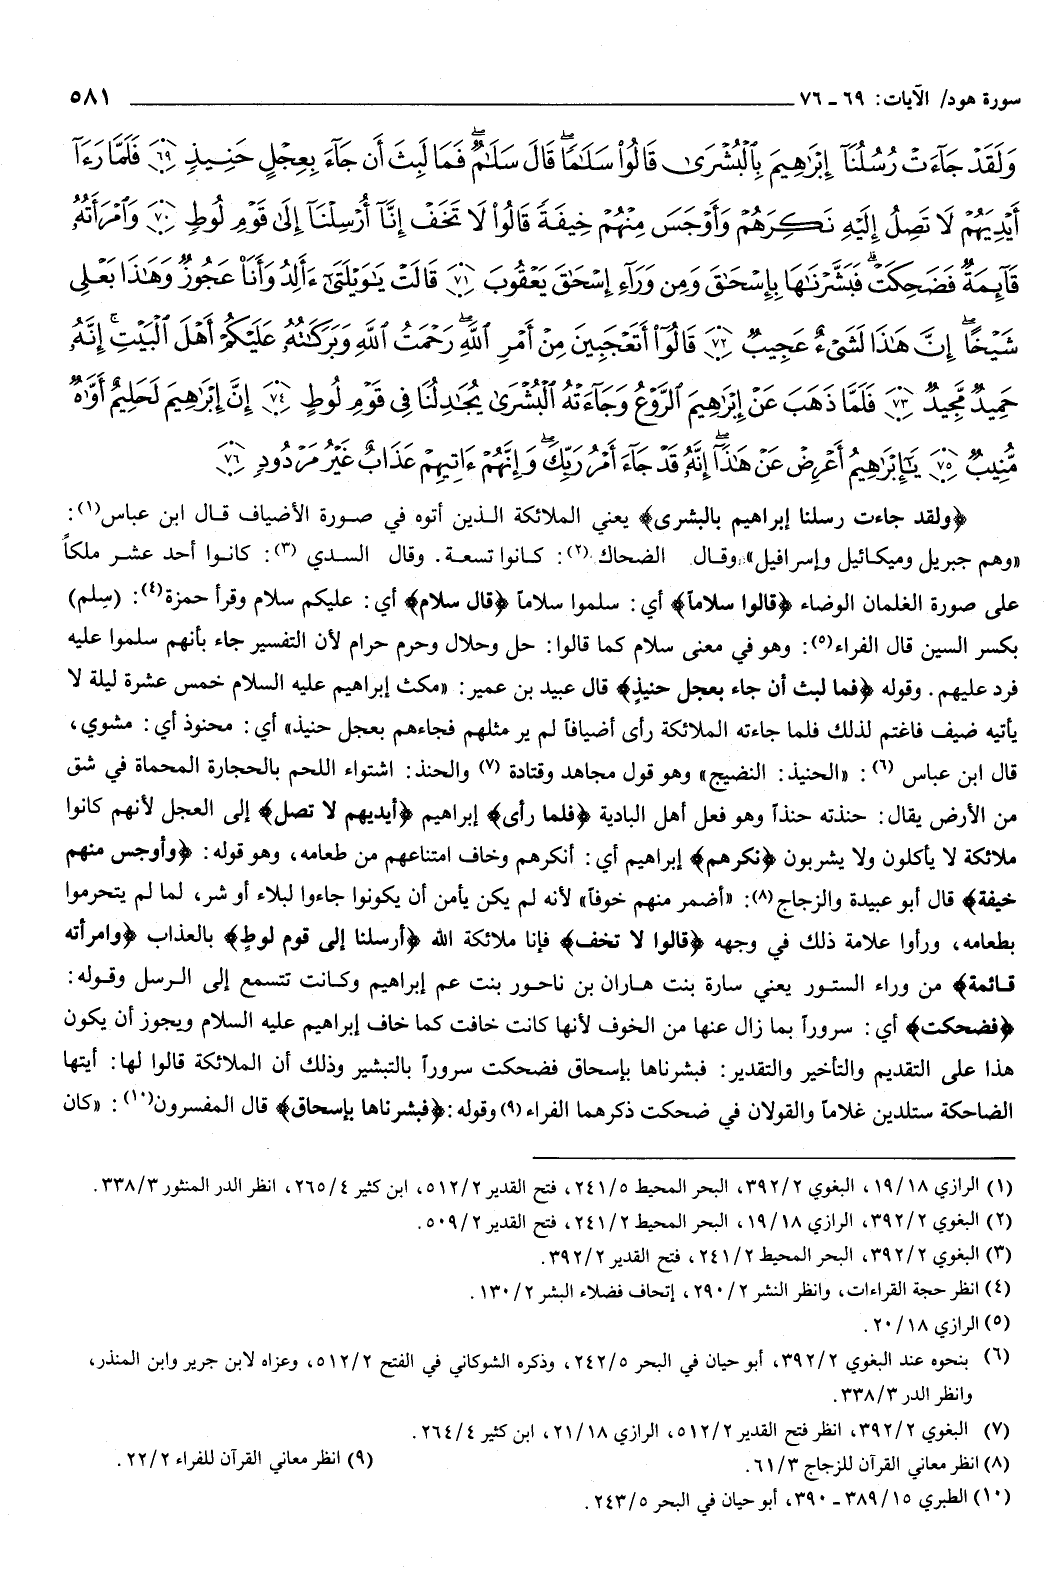 سورة هود/ الآيات: ٦٩ ـ ٧٦ ٥٨١
وَلَقَدْ جَآءَتْ رُسُلُنَآ إِبْرَٰهِيمَ بِٱلْبُشْرَىٰ قَالُوا۟ سَلَٰمًا ۖ قَالَ سَلَٰمٌ ۖ فَمَا لَبِثَ أَن جَآءَ بِعِجْلٍ حَنِيذٍ ﴿٦٩﴾ فَلَمَّا رَءَآ
أَيْدِيَهُمْ لَا تَصِلُ إِلَيْهِ نَكِرَهُمْ وَأَوْجَسَ مِنْهُمْ خِيفَةً ۚ قَالُوا۟ لَا تَخَفْ إِنَّآ أُرْسِلْنَآ إِلَىٰ قَوْمِ لُوطٍ ﴿٧٠﴾ وَٱمْرَأَتُهُۥ
قَآئِمَةٌ فَضَحِكَتْ فَبَشَّرْنَٰهَا بِإِسْحَٰقَ وَمِن وَرَآءِ إِسْحَٰقَ يَعْقُوبَ ﴿٧١﴾ قَالَتْ يَٰوَيْلَتَىٰٓ ءَأَلِدُ وَأَنَا۠ عَجُوزٌ وَهَٰذَا بَعْلِى
شَيْخًا ۖ إِنَّ هَٰذَا لَشَىْءٌ عَجِيبٌ ﴿٧٢﴾ قَالُوٓا۟ أَتَعْجَبِينَ مِنْ أَمْرِ ٱللَّهِ ۖ رَحْمَتُ ٱللَّهِ وَبَرَكَٰتُهُۥ عَلَيْكُمْ أَهْلَ ٱلْبَيْتِ ۚ إِنَّهُۥ
حَمِيدٌ مَّجِيدٌ ﴿٧٣﴾ فَلَمَّا ذَهَبَ عَنْ إِبْرَٰهِيمَ ٱلرَّوْعُ وَجَآءَتْهُ ٱلْبُشْرَىٰ يُجَٰدِلُنَا فِى قَوْمِ لُوطٍ ﴿٧٤﴾ إِنَّ إِبْرَٰهِيمَ لَحَلِيمٌ أَوَّٰهٌ
مُّنِيبٌ ﴿٧٥﴾ يَٰٓإِبْرَٰهِيمُ أَعْرِضْ عَنْ هَٰذَآ ۖ إِنَّهُۥ قَدْ جَآءَ أَمْرُ رَبِّكَ ۖ وَإِنَّهُمْ ءَاتِيهِمْ عَذَابٌ غَيْرُ مَرْدُودٍ ﴿٧٦﴾
﴿ولقد جاءت رسلنا إبراهيم بالبشرى﴾ يعني الملائكة الذين أتوه في صورة الأضياف قال ابن عباس(١):
«وهم جبريل وميكائيل وإسرافيل» وقال الضحاك(٢): كانوا تسعة. وقال السدي(٣): كانوا أحد عشر ملكاً
على صورة الغلمان الوضاء ﴿قالوا سلاماً﴾ أي: سلموا سلاماً ﴿قال سلام﴾ أي: عليكم سلام وقرأ حمزة(٤): (سِلم)
بكسر السين قال الفراء(٥): وهو في معنى سلام كما قالوا: حل وحلال وحرم حرام لأن التفسير جاء بأنهم سلموا عليه
فرد عليهم. وقوله ﴿فما لبث أن جاء بعجل حنيذٍ﴾ قال عبيد بن عمير: «مكث إبراهيم عليه السلام خمس عشرة ليلة لا
يأتيه ضيف فاغتم لذلك فلما جاءته الملائكة رأى أضيافاً لم ير مثلهم فجاءهم بعجل حنيذ» أي: محنوذ أي: مشوي،
قال ابن عباس(٦): «الحنيذ: النضيج» وهو قول مجاهد وقتادة(٧) والحنذ: اشتواء اللحم بالحجارة المحماة في شق
من الأرض يقال: حنذته حنذاً وهو فعل أهل البادية ﴿فلما رأى﴾ إبراهيم ﴿أيديهم لا تصل﴾ إلى العجل لأنهم كانوا
ملائكة لا يأكلون ولا يشربون ﴿نكرهم﴾ إبراهيم أي: أنكرهم وخاف امتناعهم من طعامه، وهو قوله: ﴿وأوجس منهم
خيفة﴾ قال أبو عبيدة والزجاج(٨): «أضمر منهم خوفاً» لأنه لم يكن يأمن أن يكونوا جاءوا لبلاء أو شر، لما لم يتحرموا
بطعامه، ورأوا علامة ذلك في وجهه ﴿قالوا لا تخف﴾ فإنا ملائكة الله ﴿أرسلنا إلى قوم لوطٍ﴾ بالعذاب ﴿وامرأته
قائمة﴾ من وراء الستور يعني سارة بنت هاران بن ناحور بنت عم إبراهيم وكانت تتسمع إلى الرسل وقوله:
﴿فضحكت﴾ أي: سروراً بما زال عنها من الخوف لأنها كانت خافت كما خاف إبراهيم عليه السلام ويجوز أن يكون
هذا على التقديم والتأخير والتقدير: فبشرناها بإسحاق فضحكت سروراً بالتبشير وذلك أن الملائكة قالوا لها: أيتها
الضاحكة ستلدين غلاماً والقولان في ضحكت ذكرهما الفراء(٩) وقوله: ﴿فبشرناها بإسحاق﴾ قال المفسرون(١٠): «كان
(١) الرازي ١٩/١٨، البغوي ٣٩٢/٢، البحر المحيط ٢٤١/٥، فتح القدير ٥١٢/٢، ابن كثير ٢٦٥/٤، انظر الدر المنثور ٣٣٨/٣.
(٢) البغوي ٣٩٢/٢، الرازي ١٩/١٨، البحر المحيط ٢٤١/٢، فتح القدير ٥٠٩/٢.
(٣) البغوي ٣٩٢/٢، البحر المحيط ٢٤١/٢، فتح القدير ٣٩٢/٢.
(٤) انظر حجة القراءات، وانظر النشر ٢٩٠/٢، إتحاف فضلاء البشر ١٣٠/٢.
(٥) الرازي ٢٠/١٨.
(٦) بنحوه عند البغوي ٣٩٢/٢، أبو حيان في البحر ٢٤٢/٥، وذكره الشوكاني في الفتح ٥١٢/٢، وعزاه لابن جرير وابن المنذر،
وانظر الدر ٣٣٨/٣.
(٧) البغوي ٣٩٢/٢، انظر فتح القدير ٥١٢/٢، الرازي ٢١/١٨، ابن كثير ٢٦٤/٤.
(٨) انظر معاني القرآن للزجاج ٦١/٣. (٩) انظر معاني القرآن للفراء ٢٢/٢.
(١٠) الطبري ٣٨٩/١٥ ـ ٣٩٠، أبو حيان في البحر ٢٤٣/٥.